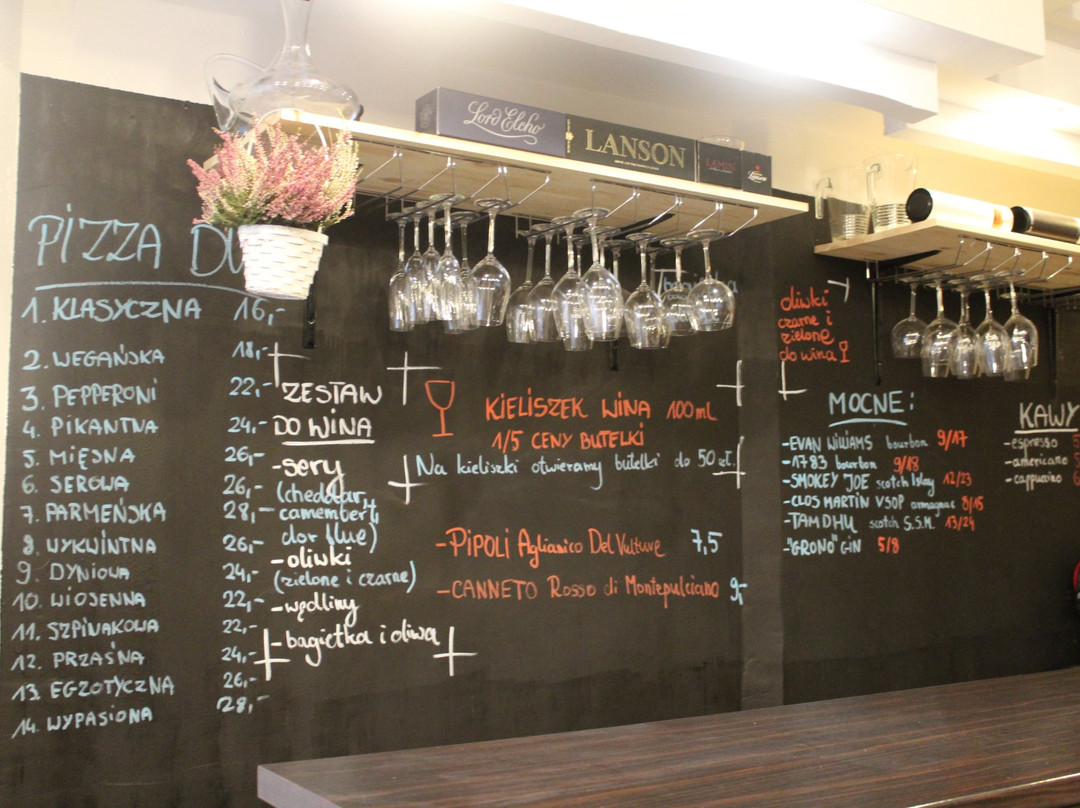 Lord Elcho
LANSON
PIZZA DU
1. KLASYCZNA 16,-
2. WEGAŃSKA 18,-
3. PEPPERONI 22,-
4. PIKANTNA 24,-
5. MIĘSNA 26,-
6. SEROWA 26,-
7. PARMEŃSKA 28,-
8. WYKWINTNA 26,-
9. DYNIOWA 24,-
10. WIOSENNA 22,-
11. SZPINAKOWA 22,-
12. PRZAŚNA 24,-
13. EGZOTYCZNA 26,-
14. WYPASIONA 28,-
ZESTAW
DO WINA
-sery
(cheddar,
camembert,
dor blue)
-oliwki
(zielone i czarne)
-wędliny
-bagietka i oliwa
KIELISZEK WINA 100ml
1/5 CENY BUTELKI
Na kieliszki otwieramy butelki do 50 zł.
-PIPOLI Aglianico Del Vulture 7,5
-CANNETO Rosso di Montepulciano 9,-
oliwki
czarne i
zielone
do wina
MOCNE:
-EVAN WILLIAMS bourbon 9/17
-1783 bourbon 9/18
-SMOKEY JOE scotch Islay 12/23
-CLOS MARTIN VSOP armagnac 8/15
-TAMDHU scotch S.S.M. 13/24
-"GRONO" GIN 5/8
KAWY
-espresso
-americano
-cappucino